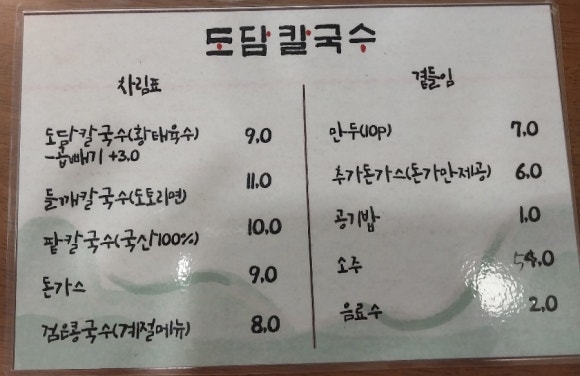 도담칼국수
차림표
도담칼국수(황태육수) 9.0
-곱빼기 +3.0
들깨칼국수(도토리면) 11.0
팥칼국수(국산100%) 10.0
돈가스 9.0
검은콩국수(계절메뉴) 8.0
곁들임
만두(10P) 7.0
추가돈가스(돈가만제공) 6.0
공기밥 1.0
소주
음료수 2.0